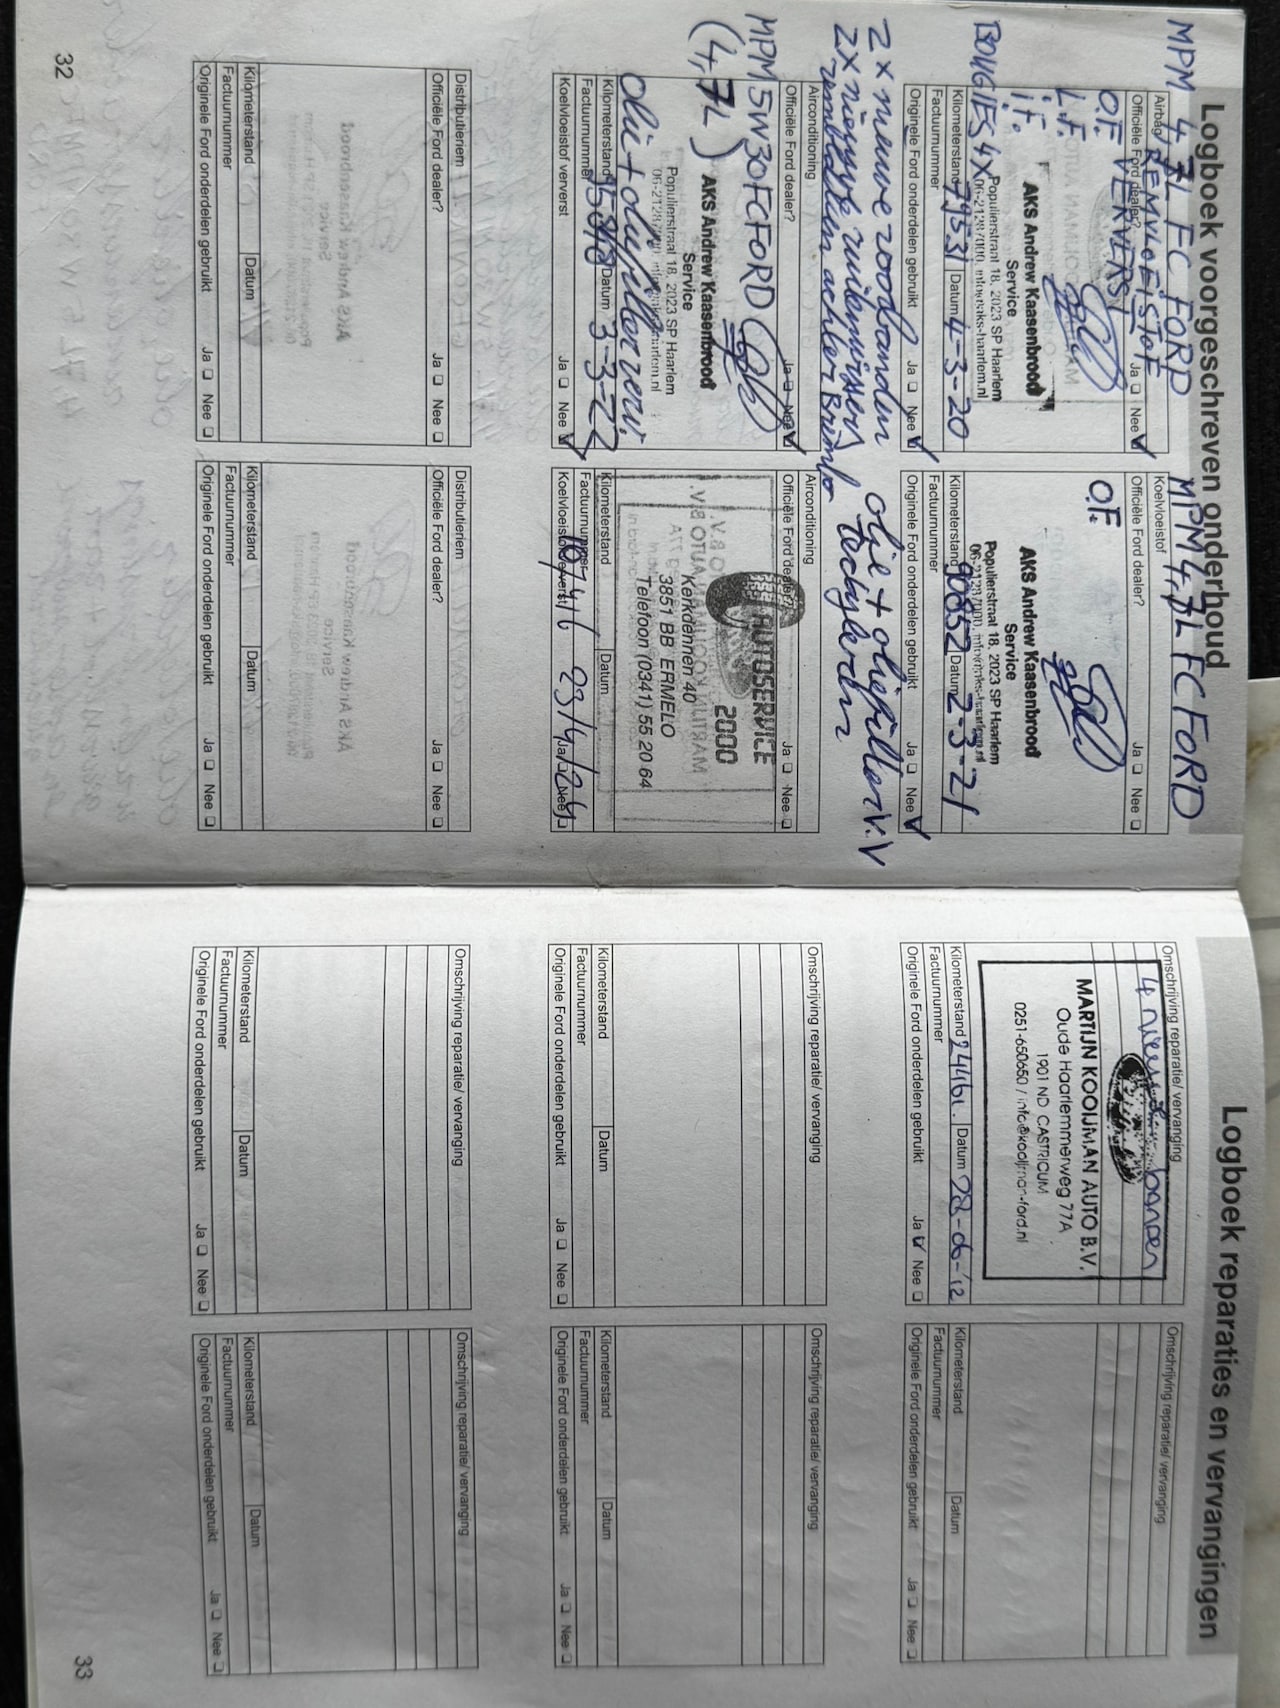 Logboek voorgeschreven onderhoud
MPM 4,7L FC FORD
MPM 4,7L FC FORD
Airbag
REMVLOEISTOF
Officiële Ford dealer?
Ja Nee
VERVERST
O.F.
L.F.
i.F.
BOUGIES 4X
AKS Andrew Kaasenbrood
Service
Populierstraat 18, 2023 SP Haarlem
Kilometerstand 79531 Datum 4-3-20
Factuurnummer
Originele Ford onderdelen gebruikt Ja Nee
2 x nieuwe voorbanden
2x nieuwe ruitenwissers
remblokken achter Brembo
Koelvloeistof
Officiële Ford dealer?
Ja Nee
O.F.
AKS Andrew Kaasenbrood
Service
Populierstraat 18, 2023 SP Haarlem
Kilometerstand 90852 Datum 2-3-21
Factuurnummer
Originele Ford onderdelen gebruikt Ja Nee
olie + oliefilter V.V
Airconditioning
Officiële Ford dealer?
Ja Nee
MPM 5W30FCFORD
(4,7L)
AKS Andrew Kaasenbrood
Service
Populierstraat 18, 2023 SP Haarlem
olie + oliefilter verv.
Kilometerstand Datum 3-3-22
Factuurnummer
Koelvloeistof ververst Ja Nee
Airconditioning
Officiële Ford dealer?
Ja Nee
AUTOSERVICE
2000
Kerkdennen 40
3851 BB ERMELO
Telefoon (0341) 55 20 64
Kilometerstand Datum
Factuurnummer
107416 23/4/24
Koelvloeistof ververst Ja Nee
Distributieriem
Officiële Ford dealer?
Ja Nee
Kilometerstand Datum
Factuurnummer
Originele Ford onderdelen gebruikt Ja Nee
Distributieriem
Officiële Ford dealer?
Ja Nee
Kilometerstand Datum
Factuurnummer
Originele Ford onderdelen gebruikt Ja Nee
32
Logboek reparaties en vervangingen
Omschrijving reparatie/ vervanging
4 nieuwe banden
MARTIJN KOOIJMAN AUTO B.V.
Oude Haarlemmerweg 77A
1901 ND CASTRICUM
0251-650650 / info@kooijman-ford.nl
Kilometerstand 24461. Datum 28-06-'12
Factuurnummer
Originele Ford onderdelen gebruikt Ja Nee
Omschrijving reparatie/ vervanging
Kilometerstand Datum
Factuurnummer
Originele Ford onderdelen gebruikt Ja Nee
Omschrijving reparatie/ vervanging
Kilometerstand Datum
Factuurnummer
Originele Ford onderdelen gebruikt Ja Nee
Omschrijving reparatie/ vervanging
Kilometerstand Datum
Factuurnummer
Originele Ford onderdelen gebruikt Ja Nee
Omschrijving reparatie/ vervanging
Kilometerstand Datum
Factuurnummer
Originele Ford onderdelen gebruikt Ja Nee
Omschrijving reparatie/ vervanging
Kilometerstand Datum
Factuurnummer
Originele Ford onderdelen gebruikt Ja Nee
33